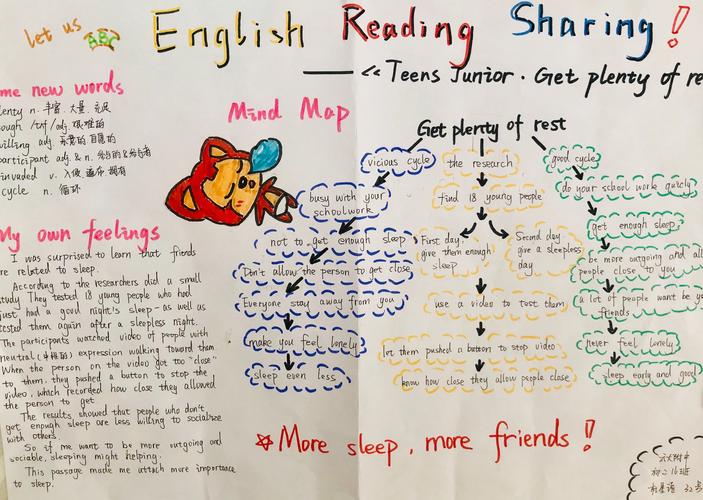 let us
English Reading Sharing!
—— << Teens Junior · Get plenty of re
me new words
lenty n. 丰富. 大量. 充足
ough /tʌf/ adj. 艰难的
willing adj. 乐意的 自愿的
participant adj. & n.
invaded v. 入侵
cycle n. 循环
My own feelings
I was surprised to learn that friends
re related to sleep.
According to the researchers did a small
tudy. They tested 18 young people who had
just had a good night's sleep— as well as
ested them again after a sleepless night.
The participants watched video of people with
neutral (中性的) expression walking toward them.
When the person on the video got too "close"
to them, they pushed a button to stop the
video, which recorded how close they allowed
the person to get.
The results showed that people who don't
get enough sleep are less willing to socialize
with others.
So if me want to be more outgoing and
sociable, sleeping might helping.
This passage made me attach more importance
to sleep.
Mind Map
Get plenty of rest
vicious cycle
busy with your
schoolwork
not to get enough sleep
Don't allow the person to get close
Everyone stay away from you
make you feel lonely
sleep even less
the research
find 18 young people
First day:
give them enough
sleep
Second day
give a sleepless
day
use a video to test them
let them pushed a button to stop video
know how close they allow people close
good cycle
do your school work quickly
get enough sleep
be more outgoing and all
people close to you
a lot of people want be yo
friends
never feel lonely
sleep early and good
☆More sleep, more friends!
附中
初二16班
32号